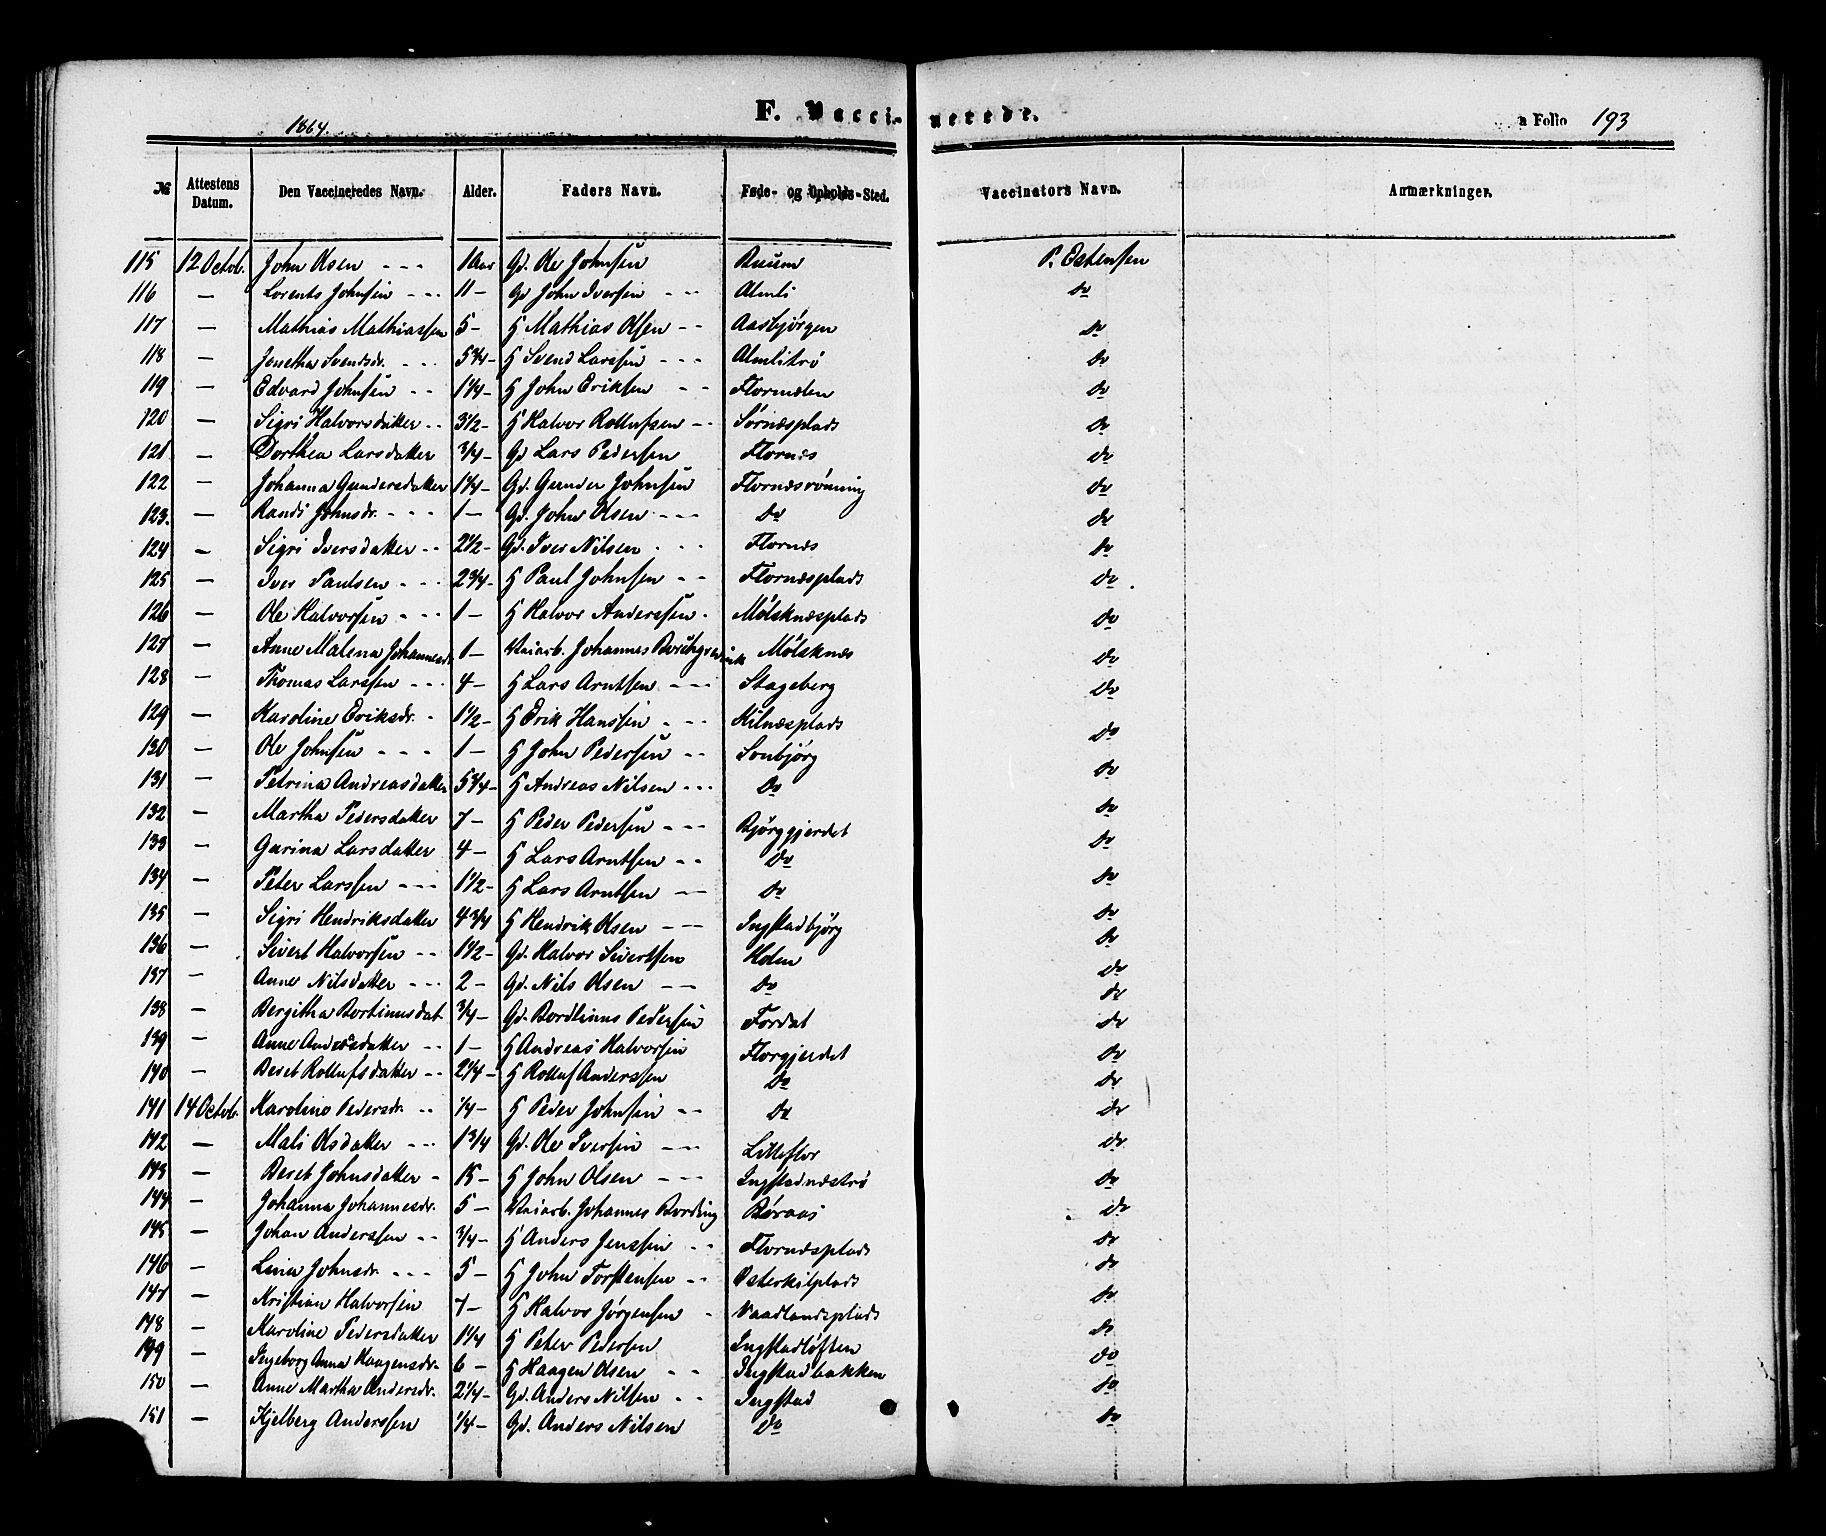 1864.
F. Vaccinerede.
a Folio 193
№ Attestens Datum. Den Vaccineredes Navn. Alder. Faders Navn. Føde- og Opholds-Sted. Vaccinators Navn. Anmærkninger.
115 12 Octob. John Olsen - - - 1 Aar Gd. Ole Johnsen Buum P. Estensen
116 — Lorents Johnsen - - - 11 - Gd John Iversen - - Almli do
117 — Mathias Mathiassen 5 - H Mathias Olsen - - Aasbjørgen do
118 — Jonetha Svendsdr. - - - 5 3/4 - H Svend Larssen - - - Almlitrø do
119 — Edvard Johnsen - - 1 1/4 - H John Eriksen - - Flormælen do
120 — Sigri Halvorsdatter - - 3 1/2 - H Halvor Rollufsen - - Sørnæsplads do
121 — Dorthea Larsdatter 3/4 - Gd Lars Pedersen Flornæs do
122 — Johanna Gundersdatter 1 1/4 - Gd. Gunder Johnsen Flornæsrønning do
123. — Randi Johnsdr. - - - 1 - Gd. John Olsen - - - Do do
124 — Sigri Iversdatter - - 2 1/2 - Gd. Iver Nilsen - - - Flornæs do
125 — Iver Paulsen - - - 2 3/4 - H Paul Johnsen - - Flornæsplads do
126 — Ole Halvorsen - - - 1 - H Halvor Anderssen - Mølsknæsplads do
127 — Anne Malena Johannesdr. 1 - Veiarb. Johannes Borchgrevink Mølsknæs do
128 — Thomas Larssen - - - 4 - H Lars Arntsen - - - Stageberg do
129 — Karoline Eriksdr. - 1 1/2 - H Erik Hanssen - - - Kilnæsplads do
130 — Ole Johnsen - - - 1 - H John Pedersen - - Sonbjørg do
131 — Petrina Andreasdatter 5 3/4 - H Andreas Nilsen - - - Do do
132 — Martha Pedersdatter 7 - H Peder Pedersen - - - Bjørggjerdet do
133 — Gurina Larsdatter 4 - H Lars Arntsen - - Do do
134 — Peter Larssen - - - 1 1/2 - H Lars Arntsen - - Do do
135 — Sigri Hendriksdatter 4 3/4 H Hendrik Olsen - - - Ingstadbjørg do
136 — Sivert Halvorsen - - 1 1/2 - Gd. Halvor Sivertsen Holen do
137 — Anne Nilsdatter - - - 2 - Gd. Nils Olsen - - Do do
138 — Bergitha Bortinusdat. 3/4 - Gd. Bordtinus Pedersen Fordal do
139 — Anne Andersdatter - - 1 - H Andreas Halvorsen Florgjerdet do
140 — Beret Rollufsdatter - - 2 1/4 - H Rolluf Anderssen Do do
141 14 Octob. Karoline Pedersdr. - - 1/4 - H Peder Johnsen - - Do do
142 — Mali Olsdatter - - - 1 3/4 Gd. Ole Iversen - - - Litleflor do
143 — Beret Johnsdatter - 15 - H John Olsen - - - Ingstadnæstrø do
144 — Johanna Johannesdr. 5 - Veiarb. Johannes Bording Børaas do
145 — Johan Anderssen - - 3/4 - H Anders Jenssen - - Flornæsplads do
146 — Lina Johnsdr. - - - 5 - H John Torstensen - - Østerkilplads do
147 — Kristian Halvorsen 7 - H Halvor Jørgensen - Vaadlandsplads do
148 — Karoline Pedersdatter 1 1/4 H Peter Pedersen Ingstadløften do
149 — Ingeborg Anna Haagensdr. 6 - H Haagen Olsen - - Ingstadbakken do
150 — Anne Martha Andersdr. 2 1/4 - Gd. Anders Nilsen - - Ingstad do
151 — Kjelberg Anderssen 1/4 - Gd. Anders Nilsen Do do